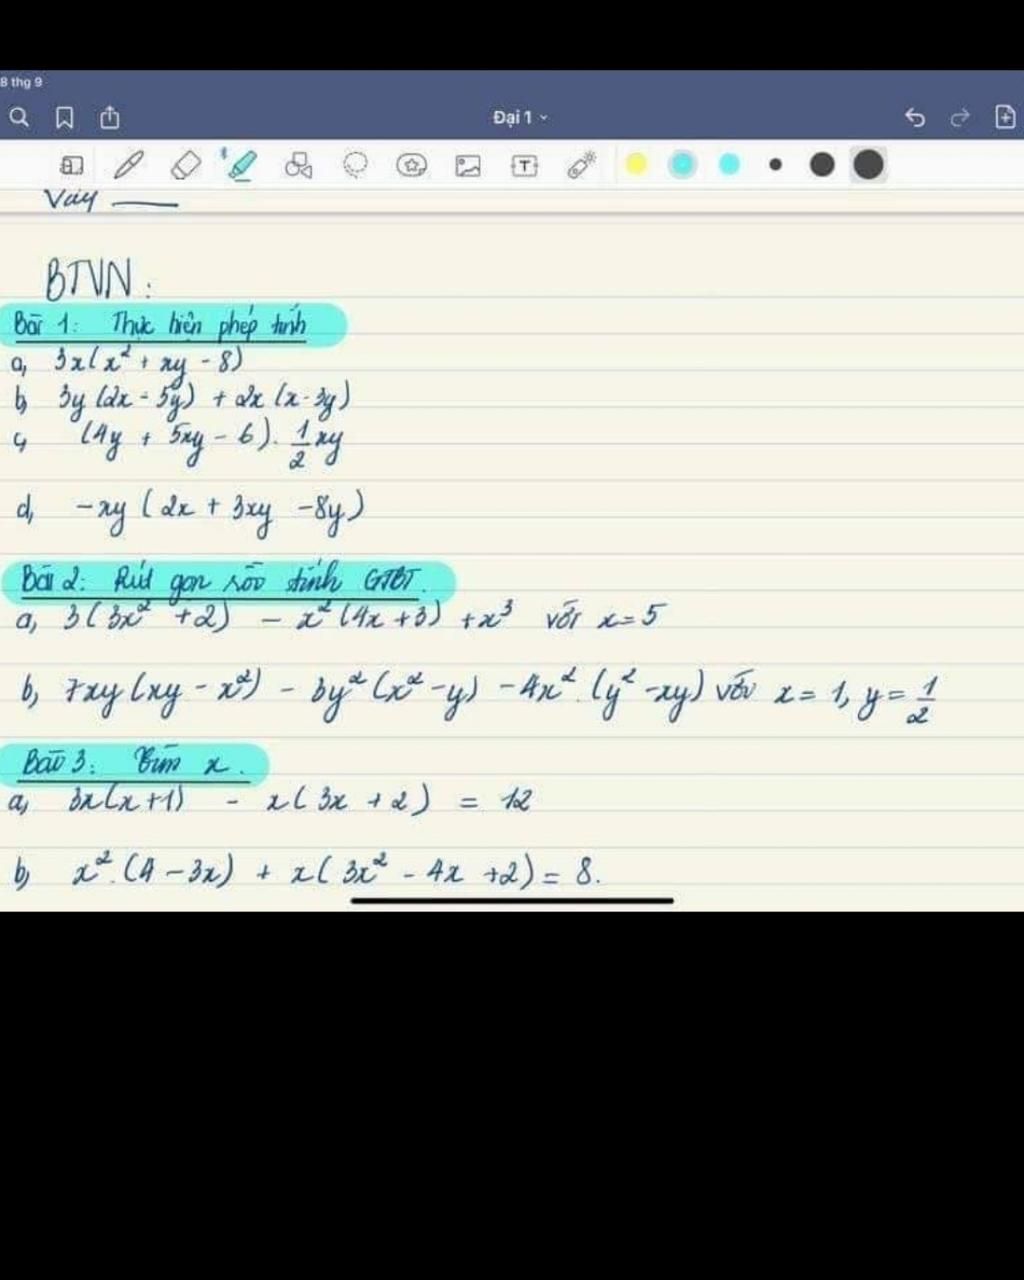 8 thg 9
Đại 1
Vậy
BTVN:
Bài 1: Thực hiện phép tính
a, 3x(x² + xy - 8)
b, 3y (2x - 5y) + 2x (x - 3y)
c, (4y + 5xy - 6). 1/2 xy
d, -xy (2x + 3xy - 8y)
Bài 2: Rút gọn rồi tính GTBT.
a, 3(3x² + 2) - x² (4x + 3) + x³ với x = 5
b, 7xy (xy - x²) - 3y² (x² - y) - 4x². (y² - xy) với x = 1, y = 1/2
Bài 3: Tìm x.
a, 3x(x + 1) - x( 3x + 2) = 12
b, x². (4 - 3x) + x( 3x² - 4x + 2) = 8.